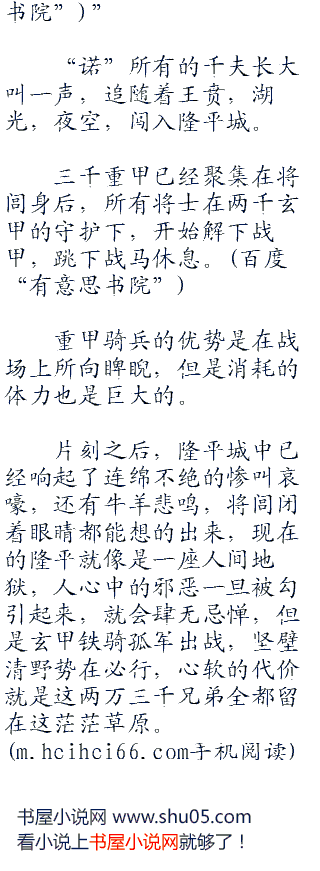 书院”)”
“诺”所有的千夫长大
叫一声，追随着王贲，湖
光，夜空，闯入隆平城。
三千重甲已经聚集在将
闾身后，所有将士在两千玄
甲的守护下，开始解下战
甲，跳下战马休息。(百度
“有意思书院”)
重甲骑兵的优势是在战
场上所向睥睨，但是消耗的
体力也是巨大的。
片刻之后，隆平城中已
经响起了连绵不绝的惨叫哀
嚎，还有牛羊悲鸣，将闾闭
着眼睛都能想的出来，现在
的隆平就像是一座人间地
狱，人心中的邪恶一旦被勾
引起来，就会肆无忌惮，但
是玄甲铁骑孤军出战，坚壁
清野势在必行，心软的代价
就是这两万三千兄弟全都留
在这茫茫草原。
(m.hcihci66.com手机阅读)
书屋小说网 www.shu05.com
看小说上书屋小说网就够了！